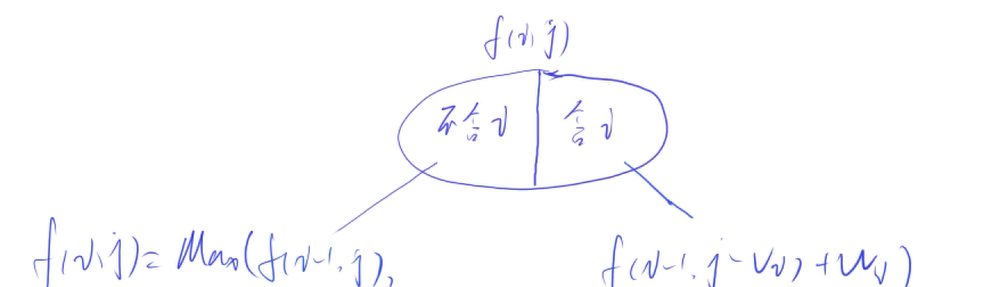 f(i,j)
不含i 含i
f(i,j)= Max(f(i-1,j), f(i-1,j-Vi)+Wi)